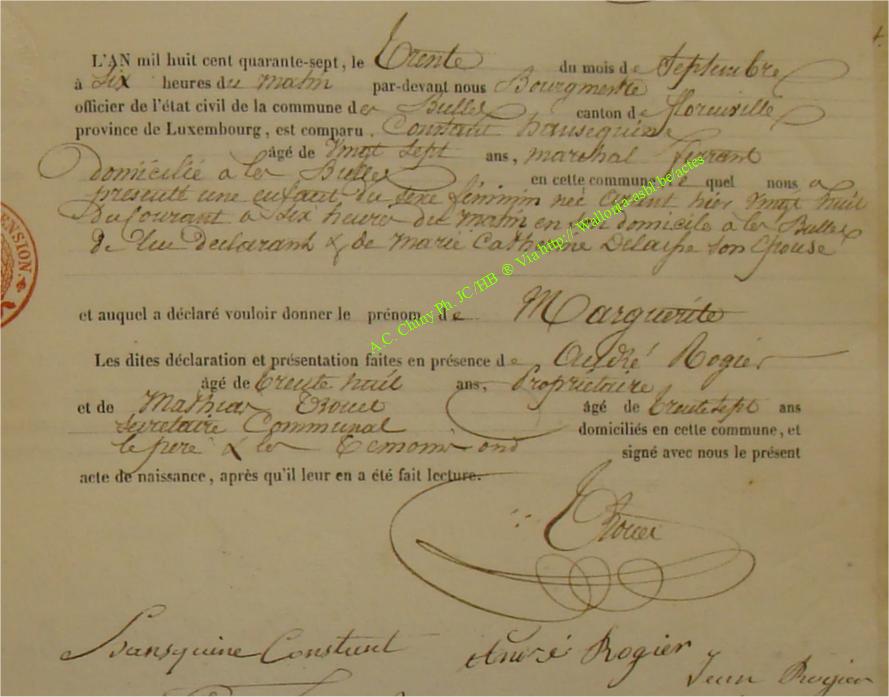 L'AN mil huit cent quarante-sept, le Trente du mois de Septembre
à Six heures du matin par-devant nous Bourgmestre
officier de l'état civil de la commune des Bulles canton de florenville
province de Luxembourg, est comparu. Constant hansequine
âgé de vingt sept ans, marchal ferrant
domicilié à les Bulles en cette commune quel nous a
presenté une enfant du sexe féminin neé hier vingt huit
du Courant a six heures du matin en domicile à les Bulles
de lui declarant & de marie Catherine Delaisse son épouse
et auquel a déclaré vouloir donner le prénom de Marguerite
Les dites déclaration et présentation faites en présence de André Rogier
âgé de trente huit ans, Propriétaire
et de Mathias âgé de trente sept ans
sécretaire Communal domiciliés en cette commune, et
le père & les Temoins ond signé avec nous le présent
acte de naissance, après qu'il leur en a été fait lecture.
Hansquine Constant André Rogier
Jean Rogier
A.C. Chiny Ph. JC/HB ® Via http://Wallonia-asbl.be/actes
ENSION.